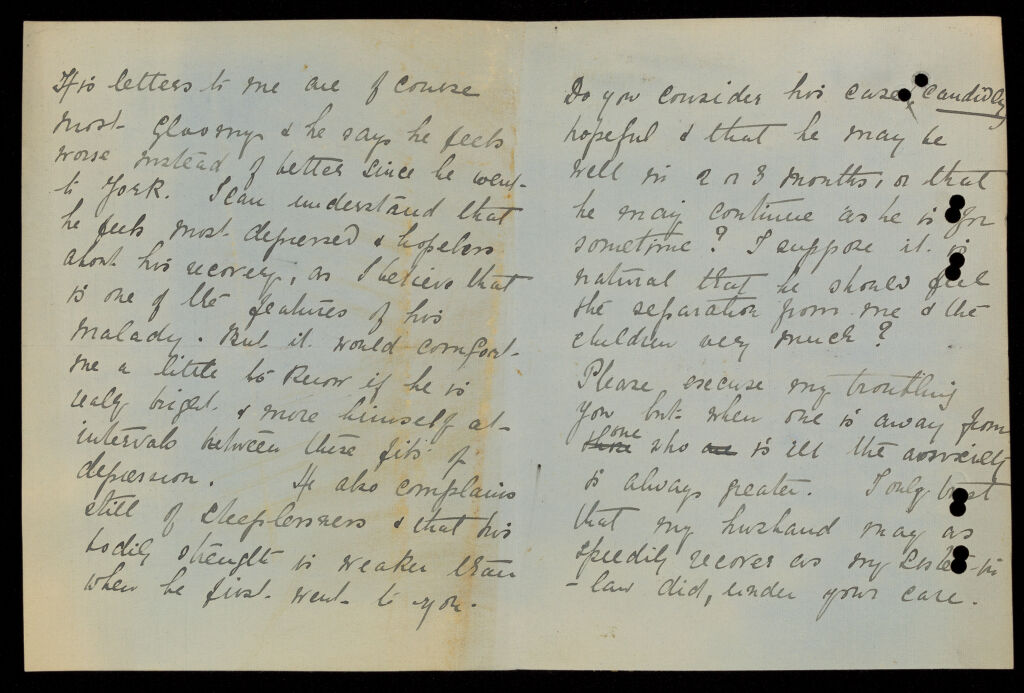 His letters to me are of course
most gloomy & he says he feels
worse instead of better since he went
to York. I can understand that
he feels most depressed & hopeless
about his recovery, as I believe that
is one of the features of his
malady. But it would comfort
me a little to know if he is
realy bright & more himself at
intervals between these fits of
depression. He also complains
still of sleeplessness & that his
bodily strength is weaker than
when he first went to you.
Do you consider his case, candidly
hopeful & that he may be
well in 2 or 3 months, or that
he may continue as he is for
sometime? I suppose it is
natural that he should feel
the separation from me & the
children very much?
Please excuse my troubling
you but when one is away from
one who is ill the anxiety
is always greater. I only trust
that my husband may as
speedily recover as my Sister-in
-law did, under your care.